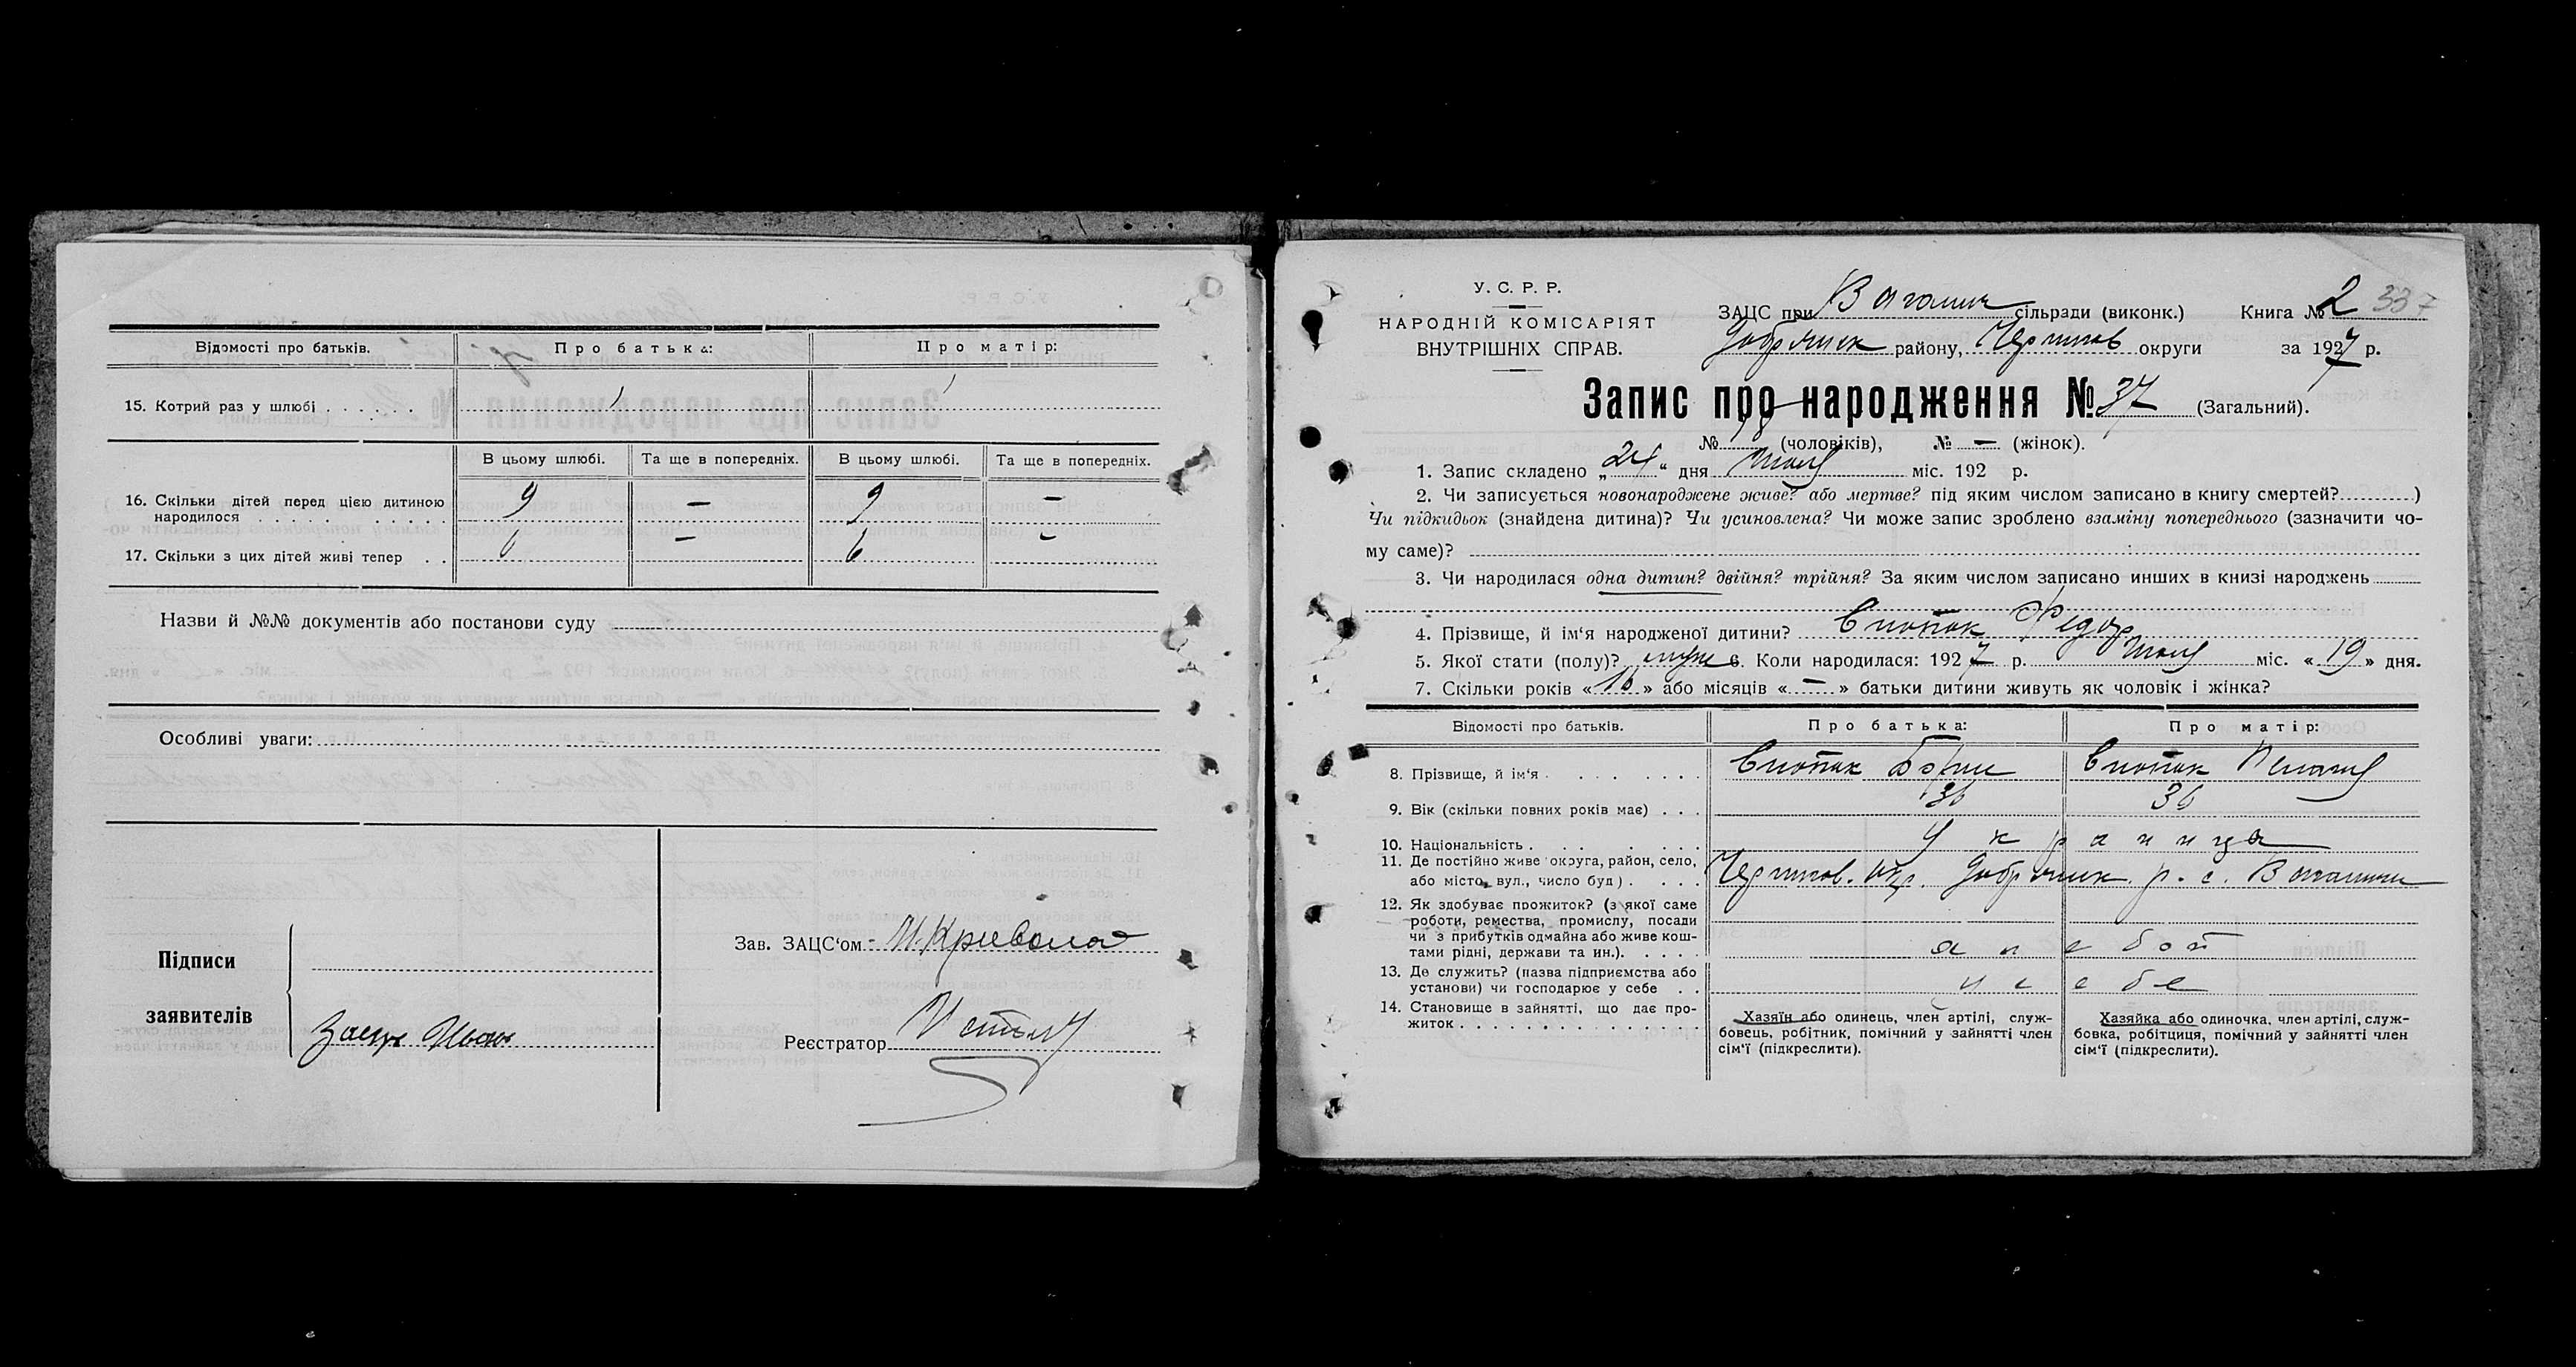 Відомості про батьків.
Про батька:
Про матір:
15. Котрий раз у шлюбі . . . . . . 1 1
В цьому шлюбі. Та ще в попередніх. В цьому шлюбі. Та ще в попередніх.
16. Скільки дітей перед цією дитиною
народилося . . . . . . . . . . 9 — 9 —
17. Скільки з цих дітей живі тепер . . 6 — 6 -
Назви й №№ документів або постанови суду
Особливі уваги:
Підписи
заявителів
Иван
Зав. ЗАЦС‘ом
Реєстратор
У. С. Р. Р.
НАРОДНІЙ КОМІСАРІЯТ
ВНУТРІШНІХ СПРАВ.
ЗАЦС при сільради (виконк.) Книга № 2 337
Добрянск району, Чернигов округи за 1927 р.
Запис про народження № 37 (Загальний).
№ 18 (чоловіків), № — (жінок).
1. Запис складено „24“ дня міс. 192 р.
2. Чи записується новонароджене живе? або мертве? під яким числом записано в книгу смертей?..........)
Чи підкидьок (знайдена дитина)? Чи усиновлена? Чи може запис зроблено взаміну попереднього (зазначити чо-
му саме)?
3. Чи народилася одна дитин? двійня? трійня? За яким числом записано инших в книзі народжень
4. Прізвище, й ім‘я народженої дитини? Федор
5. Якої стати (полу)? муж 6. Коли народилася: 1927 р. міс. «19» дня.
7. Скільки років «16» або місяців «—» батьки дитини живуть як чоловік і жінка?
Відомості про батьків.
Про батька:
Про матір:
8. Прізвище, й ім‘я . . . . . . . Борис Пелагия
9. Вік (скільки повних років має) . . . 36 36
10. Національність . . . . . . украинца
11. Де постійно живе округа, район, село,
або місто, вул., число буд.) . . . . Чернигов. окр. Добрянск. р. с.
12. Як здобуває прожиток? (з якої саме
роботи, ремества, промислу, посади
чи з прибутків одмайна або живе кош-
тами рідні, держави та ин.). . . . .
13. Де служить? (назва підприємства або
установи) чи господарює у себе . . у себе
14. Становище в зайнятті, що дає про-
житок . . . . . . . . . . . . . . .
Хазяїн або одинець, член артілі, служ-
бовець, робітник, помічний у зайнятті член
сім‘ї (підкреслити).
Хазяйка або одиночка, член артілі, служ-
бовка, робітниця, помічний у зайнятті член
сім‘ї (підкреслити).